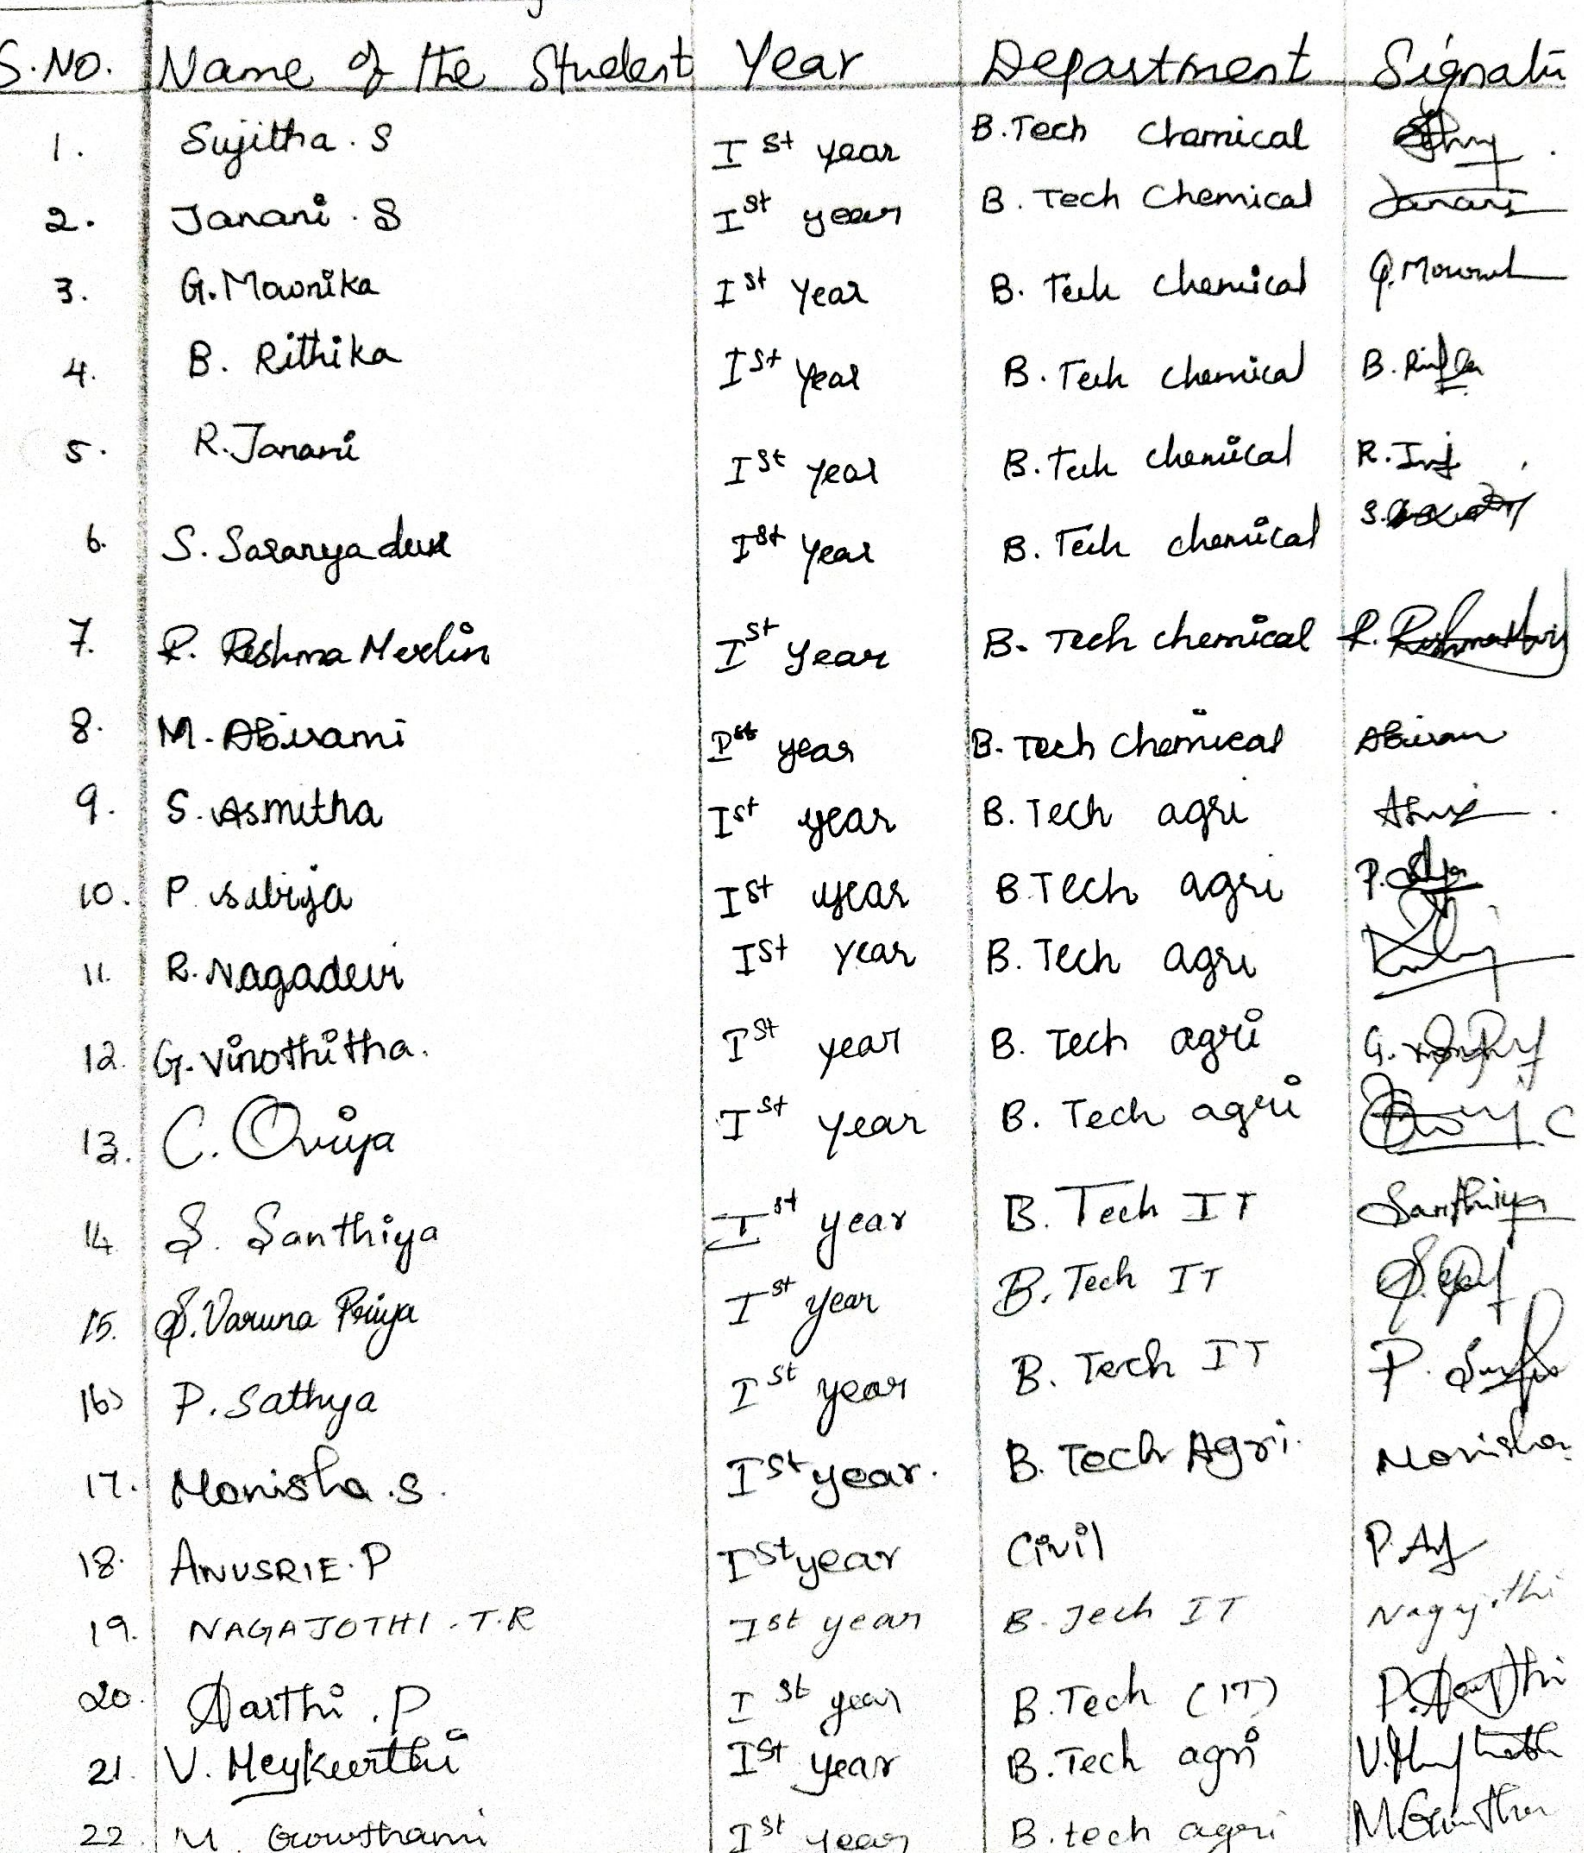 S.NO. Name of the Student Year Department Signatu
1. Sujitha . S I st year B.Tech Chemical
2. Janani . S I st year B. Tech Chemical Janani
3. G. Mounika I st Year B. Tech chemical G. Mouni
4. B. Rithika I st Year B. Tech chemical B.
5. R. Janani I st Year B. Tech chemical R.
6. S. Saranya devi I st Year B. Tech chemical S.
7. R. Reshma Merlin I st Year B. Tech chemical R. Reshma
8. M. Abirami Ist year B. Tech Chemical Abiram
9. S. Asmitha Ist year B. Tech agri
10. P sabija Ist year B.Tech agri P.
11. R. Nagadevi Ist year B. Tech agri
12. G. Vinothitha. I st year B. Tech agri G.
13. C. Oviya I st year B. Tech agri C
14 S. Santhiya I st year B. Tech IT Santhiya
15. S. Varuna Priya I st year B. Tech IT
16) P. Sathya I st year B. Tech IT P.
17. Monisha .S. I st year. B. Tech Agri. Monisha
18. ANUSRIE. P I st year Civil P.
19. NAGAJOTHI . T.R Ist year B. Tech IT Nagajothi
20. Aarthi . P I st year B.Tech (IT) P. Aarthi
21. V. Meykeerthi I st year B. Tech agri V.
22. M. Gowthami I st year B. tech agri M.